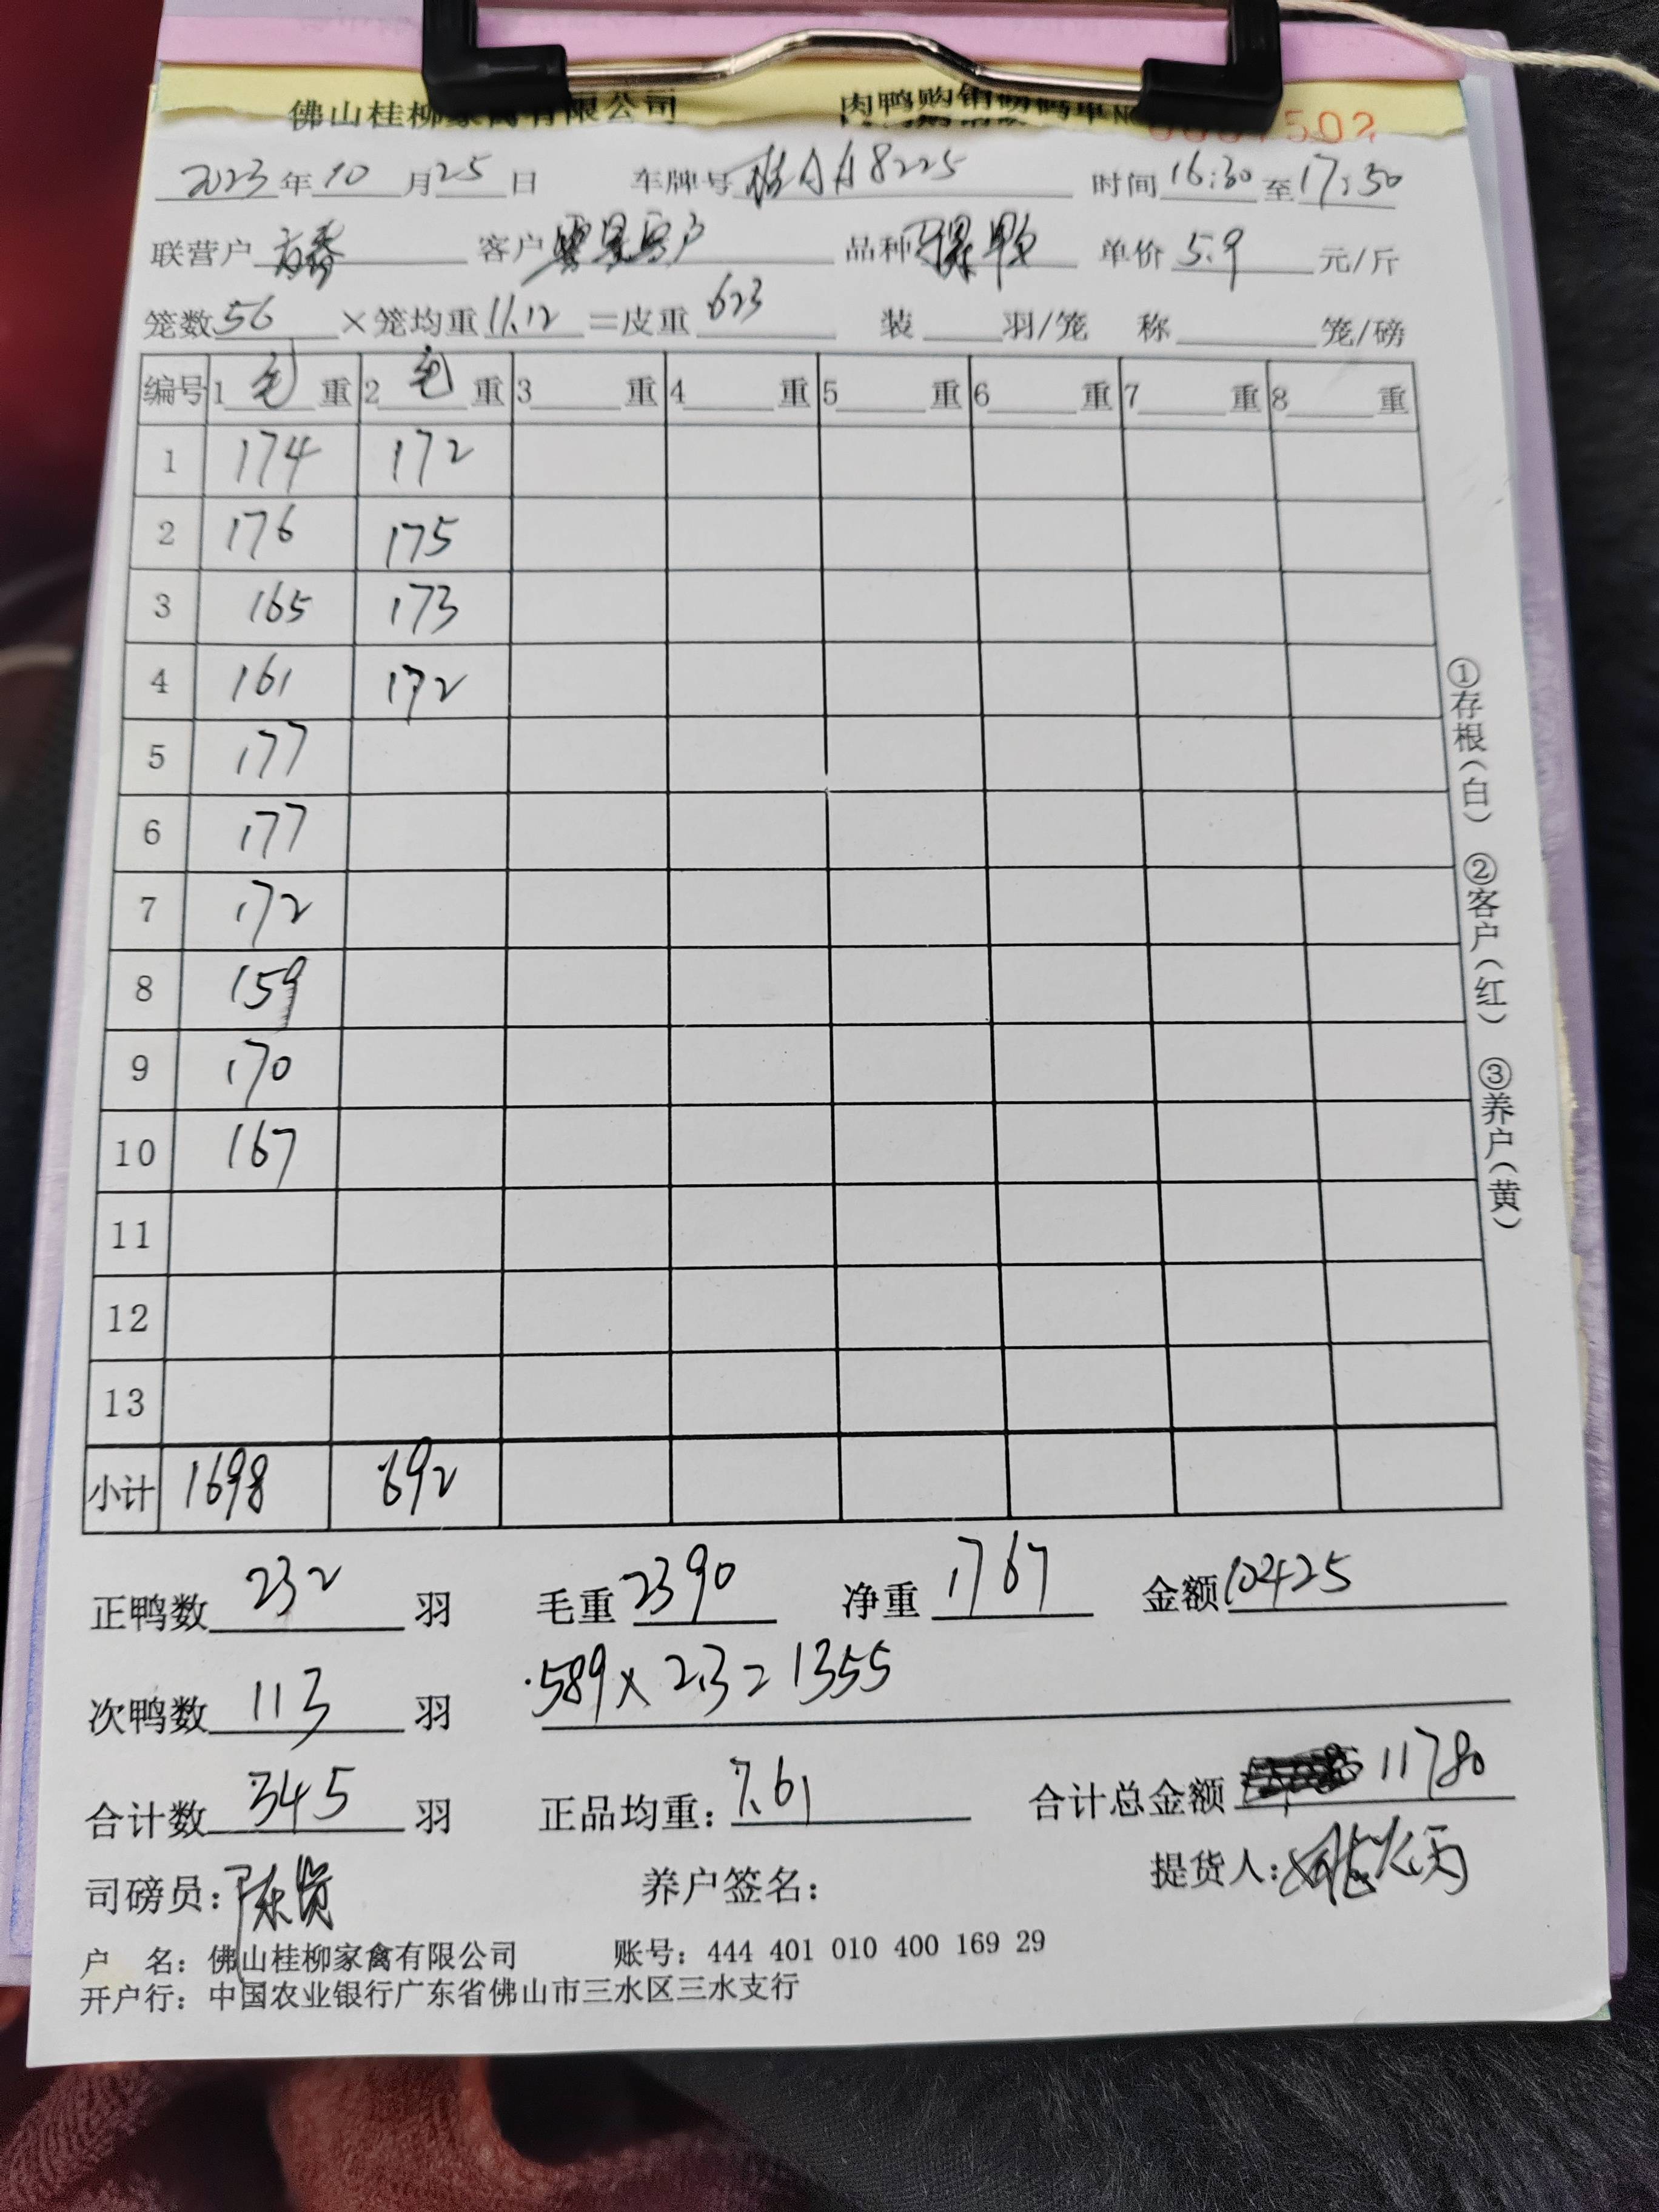 佛山桂柳家禽有限公司 肉鸭购销磅码单№ 502
2023年10月25日 车牌号 桂AA8225 时间16:30至17:50
联营户 客户 品种 单价5.9元/斤
笼数56×笼均重11.12=皮重623 装 羽/笼 称 笼/磅
编号 1毛重 2毛重 3 重 4 重 5 重 6 重 7 重 8 重
1 174 172
2 176 175
3 165 173
4 161 172
5 177
6 177
7 172
8 159
9 170
10 167
11
12
13
小计 1698 692
正鸭数232羽 毛重2390 净重1767 金额10425
次鸭数113羽 589×2.3=1355
合计数345羽 正品均重:7.61 合计总金额11780
司磅员:陈贤 养户签名: 提货人:
户 名:佛山桂柳家禽有限公司 账号:444 401 010 400 169 29
开户行:中国农业银行广东省佛山市三水区三水支行
①存根(白) ②客户(红) ③养户(黄)